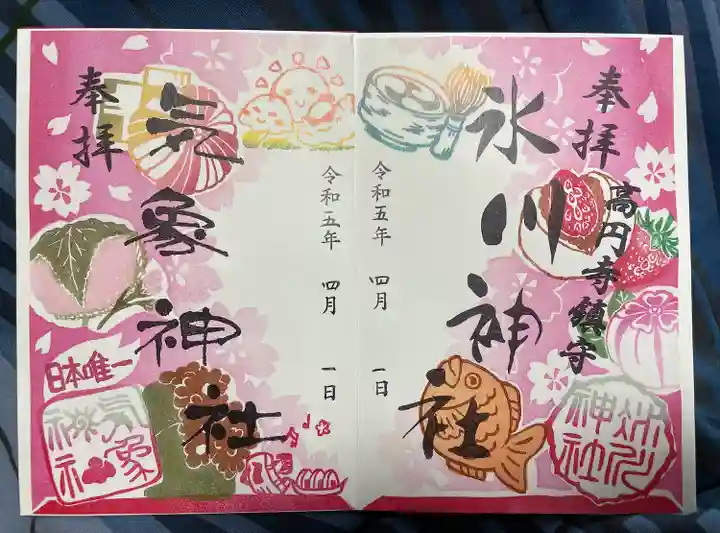 奉拝
高円寺鎮守
氷川神社
令和五年 四月 一日
氷川神社
奉拝
気象神社
令和五年 四月 一日
日本唯一
気象神社